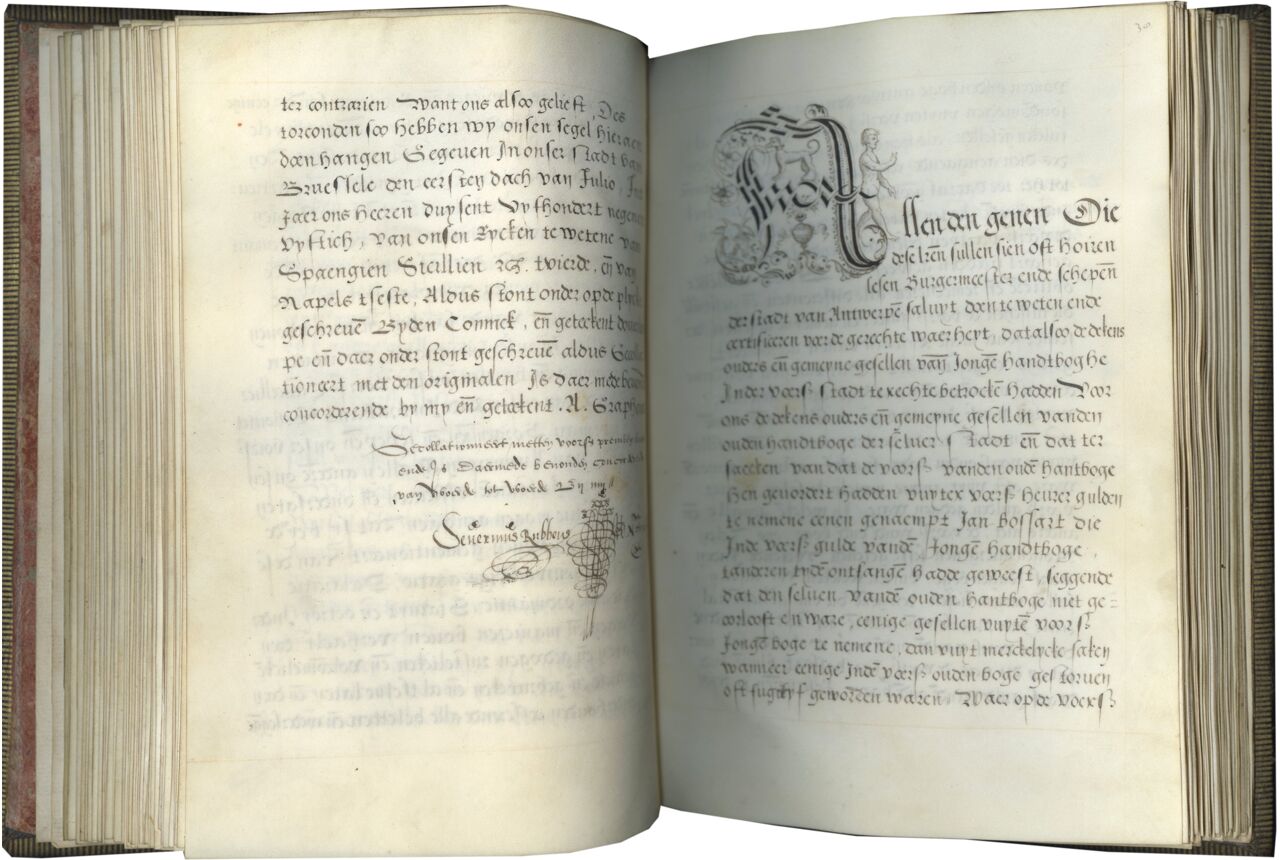 ter contrarien Want ons alsoo gelieft, Des
torconden soo hebben wy onsen segel hieraen
doen hangen Gegeven In onser stadt van
Bruessele den eersten dach van Julio, Int
Jaer ons heeren duysent vyfhondert negene
vyftich, van onsen Rycken te wetene van
Spaengien Sicillien &c. tvierde, eñ van
Napels tseste, Aldus stont onder op de plycke
geschreuē By den Coninck, eñ geteekent
pe eñ daer onder stont geschreuē aldus Gecolla
tioneert met den originalen Is daer mede bevonden
concorderende by my eñ geteekent. A. Grapheus
Gecollationeert metten voors
ende Is Daermede bevonden
van woorde tot woorde By my
Seuerinus Rubbens
30
Allen den genen Die
dese lrēn sullen sien oft hoiren
lesen Burgermeester ende schepen̄
der stadt van Antwerpē saluyt doen te weten ende
certificeren voer de gerechte waerheyt, dat alsoo de dekens
ouders eñ gemeyne gesellen vañ Jongē handtboghe
Inder voers stadt te rechte betrockē hadden Voor
ons de dekens ouders eñ gemeyne gesellen vanden
ouden handtboge der seluer stadt eñ dat ter
saecken van dat de voers vanden oudē hantboge
hen gevordert hadden vuytex voers heurer gulden
te nemene eenen genaempt Jan bossart die
Inde voers gulde vandē Jongē handtboge,
tanderen tydē ontfangen hadde geweest, seggende
dat den seluen vandē ouden hantboge niet ge=
oorlooft en ware, eenige gesellen vuytē voors
Jongē boge te nemene, dan vuyt merckelycke saken
wanneer eenige Indē voers ouden boge gestoruen
oft fugityf geworden waren, Waer op de voers